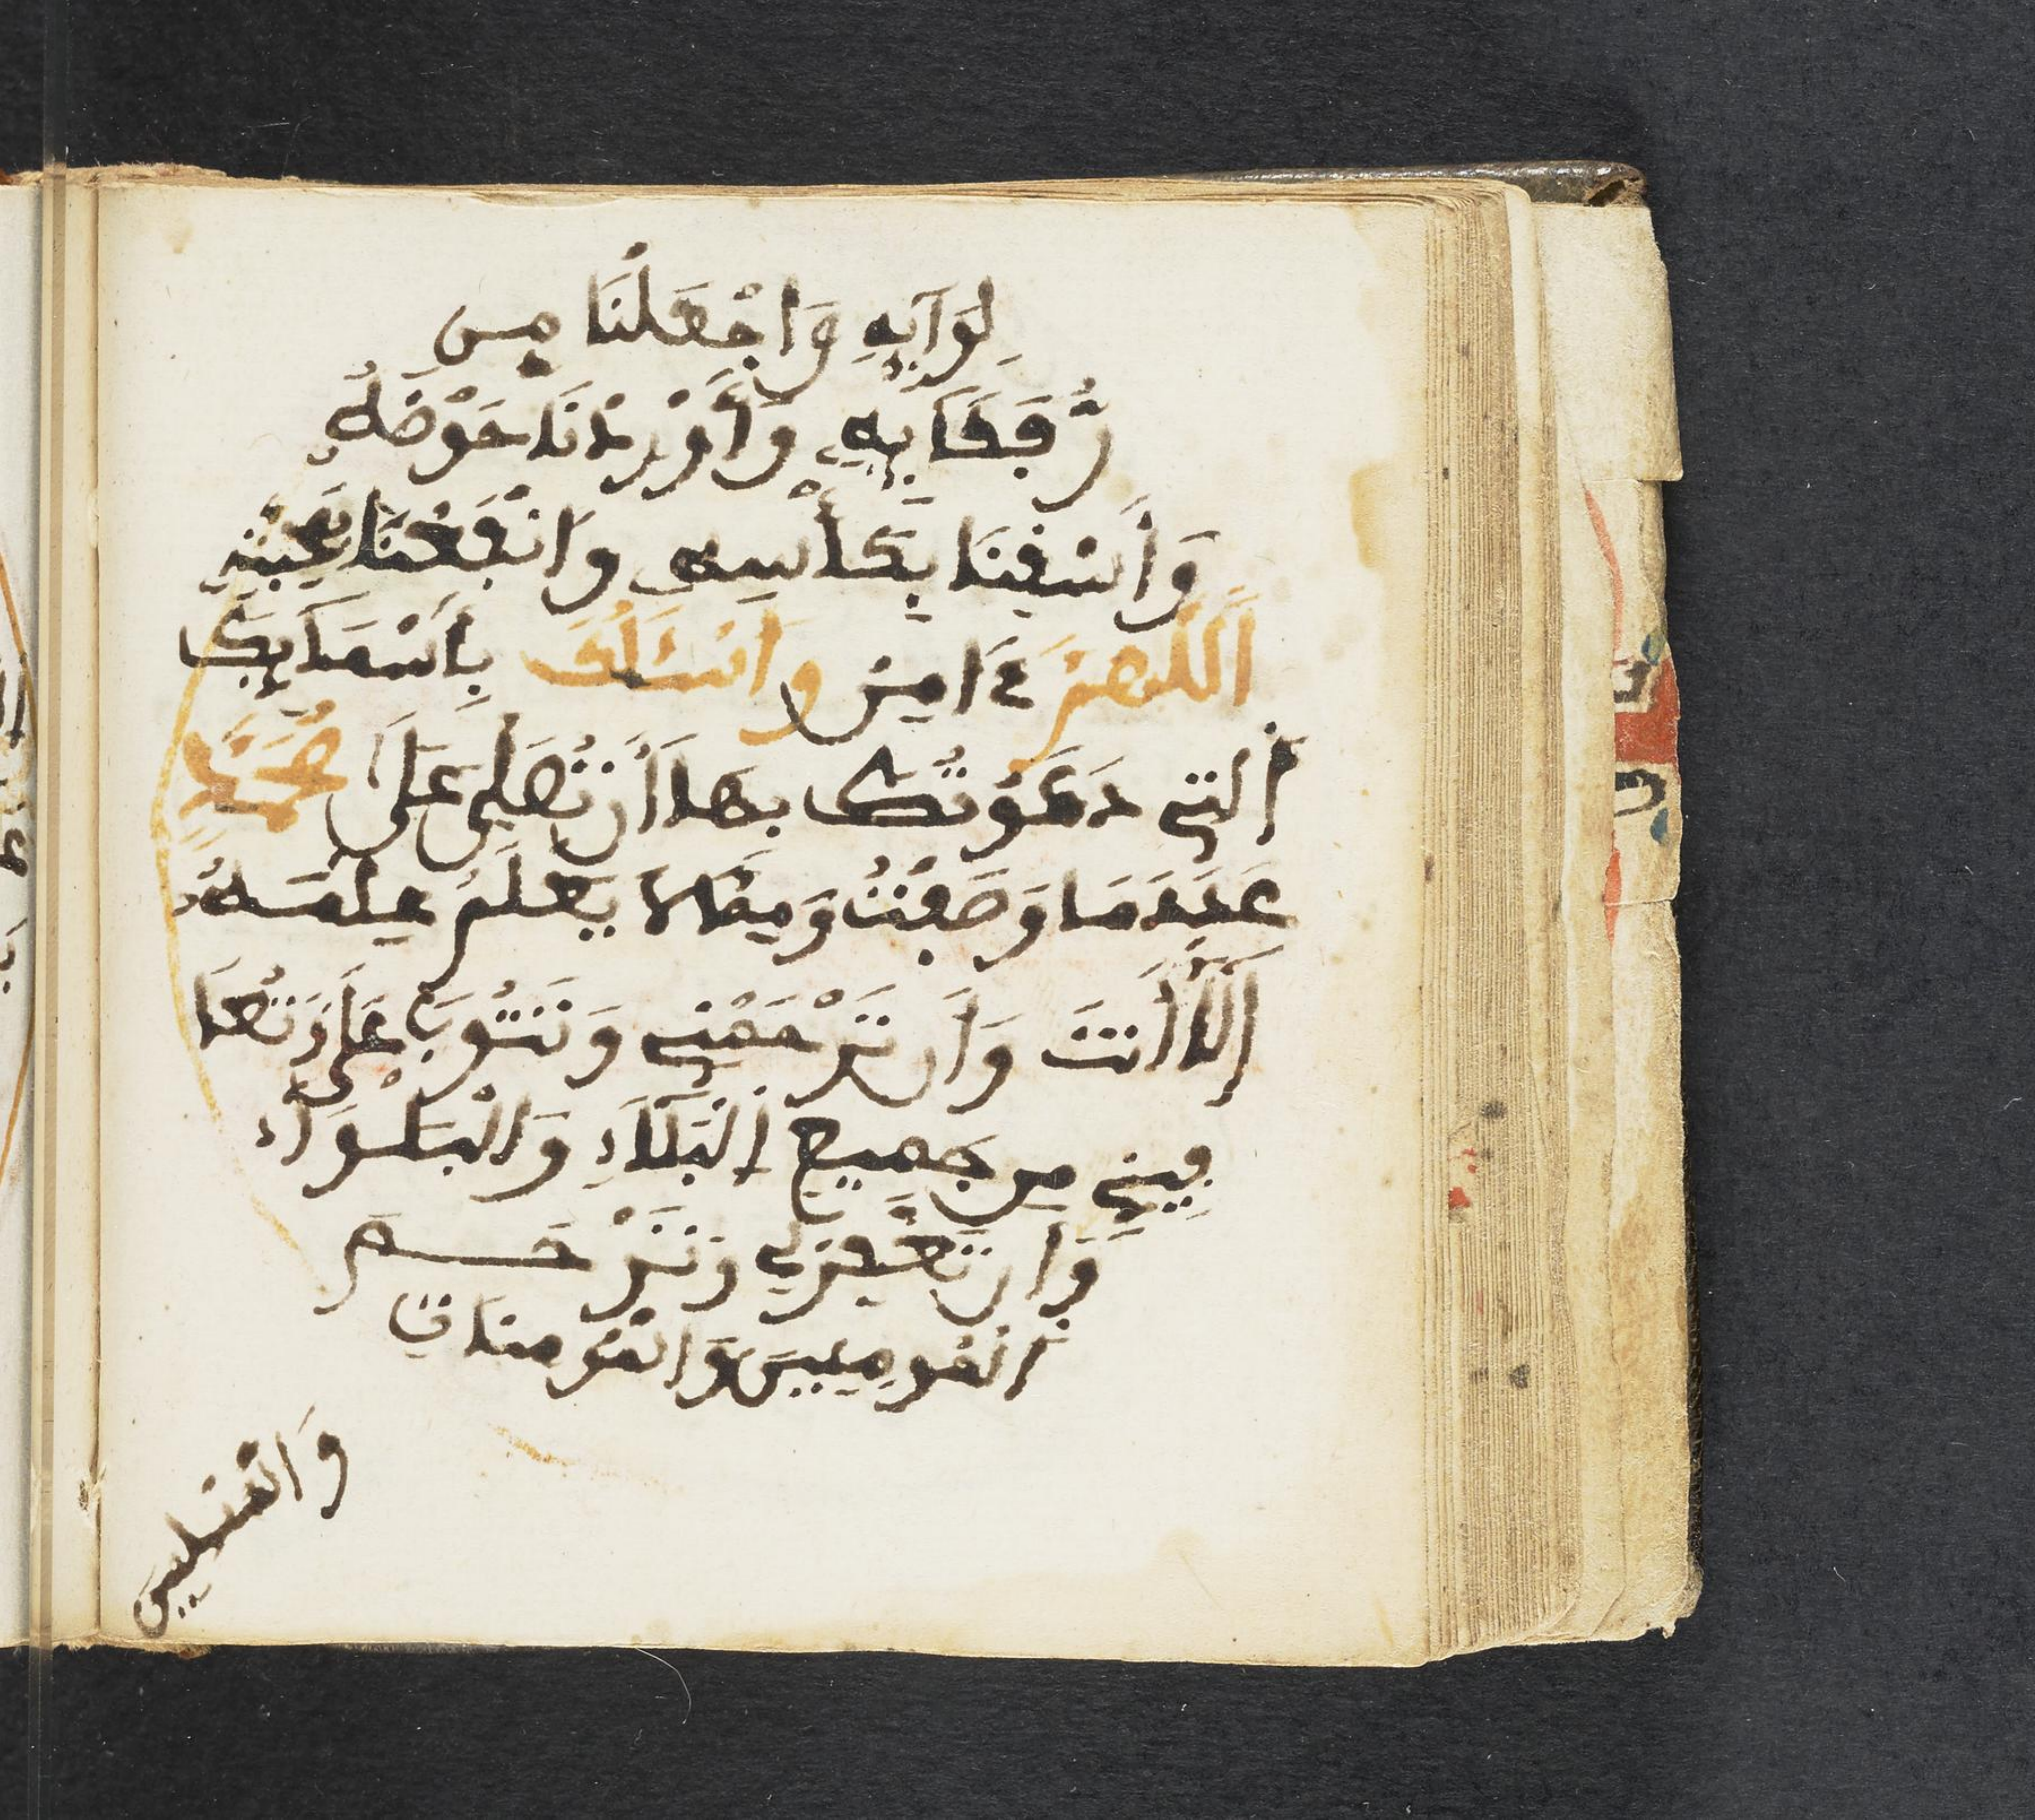 لِوَآيِهِ وَاجْعَلْنَا مِن
رُّفَقَآيِهِ وَأَوْرِدْنَا حَوْضَهُ
وَأَسْقِنَا بِكَأْسِهِ وَانْفَعْنَا بِمَحَبَّتِهِ
اَللَّهُمَّ ءَامِين وَأَسْـَٔلُكَ بِأَسْمَآيِكَ
اَلتِي دَعَوْتُكَ بِهَا أَن تُصَلِّيَ عَلَى مُحَمَّدٍ
عَدَدَ مَا وَصَفْتُ وَمِمَّا لَا يَعْلَمُ عِلْمَهُ
إِلَّا أَنتَ وَأَن تَرْحَمَنِي وَتَتُوبَ عَلَيَّ وَتُعَا
فِيَنِي مِن جَمِيعِ اِلْبَلَآءِ وَالْبَلْوَآءِ
وَأَن تَغْفِرَ لِي وَتَرْحَمَ
اَلْمُومِنِينَ وَالْمُومِنَاتِ
وَالْمُسْلِمِينَ